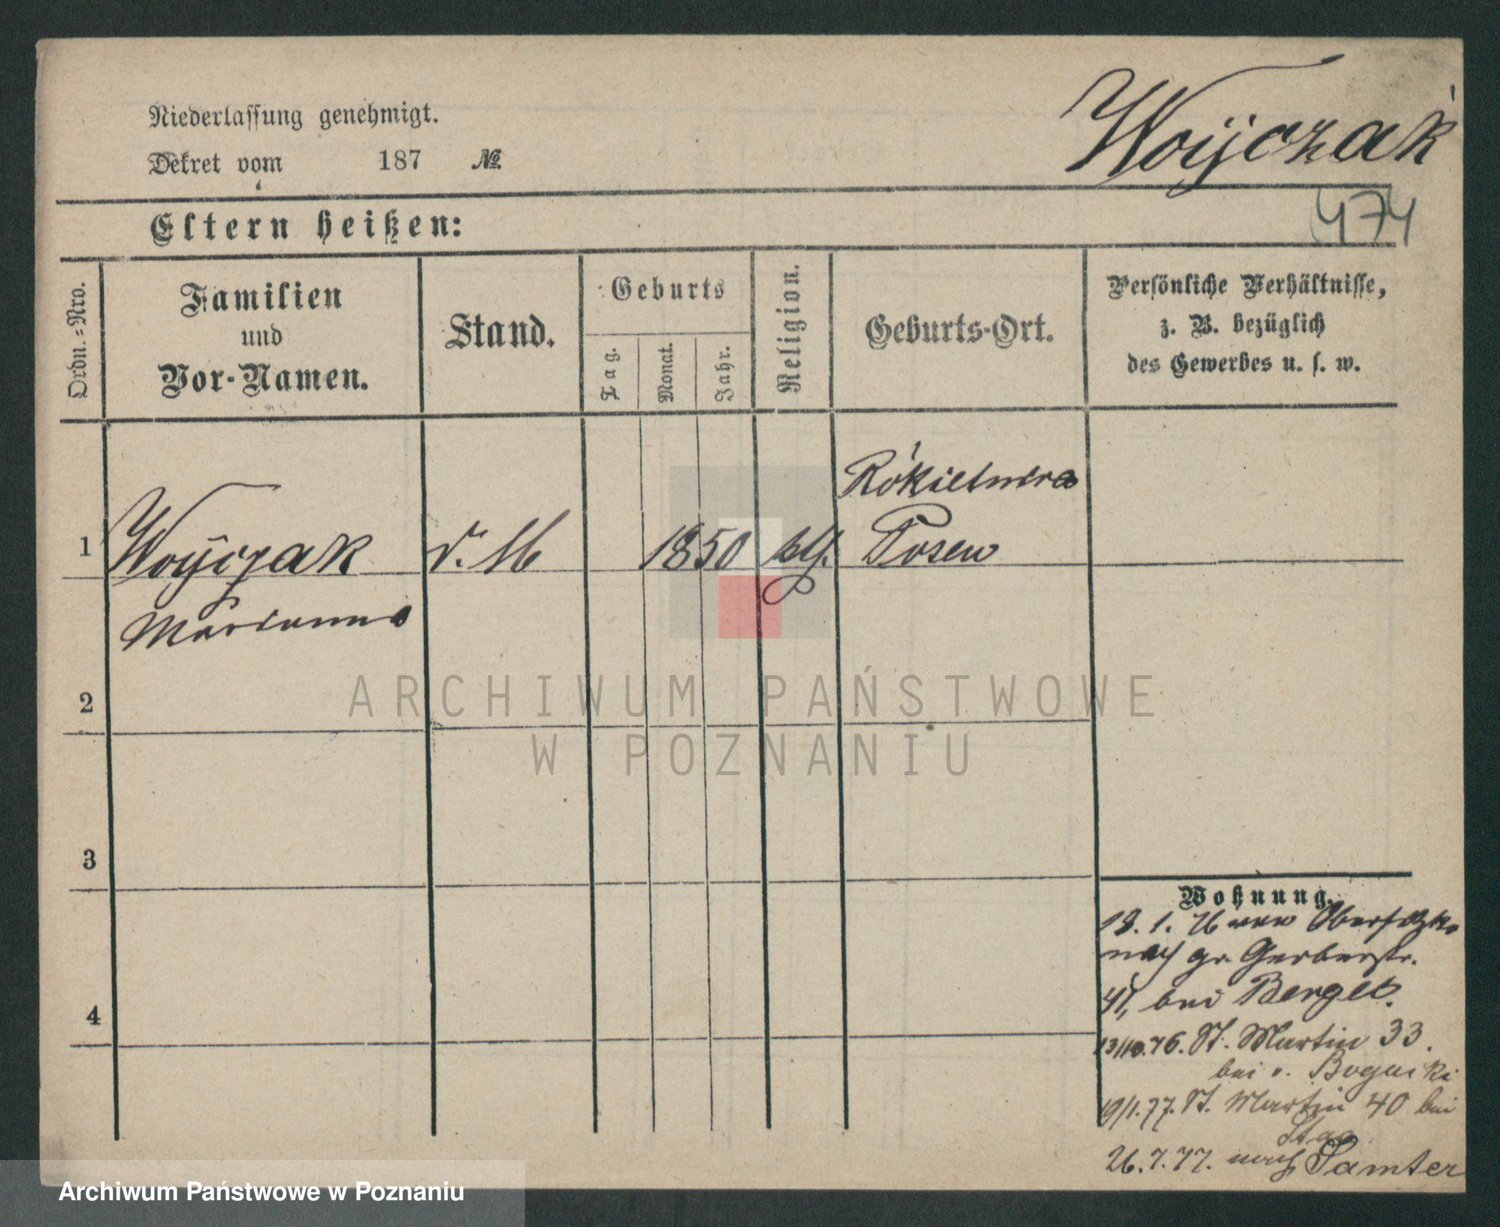 Niederlassung genehmigt.
Dekret vom 187 №
Woyczak
474
Eltern heißen:
Ordn.-Nro.
Familien
und
Vor-Namen.
Stand.
Geburts
Tag.
Monat.
Jahr.
Religion.
Geburts-Ort.
Persönliche Verhältnisse,
z. B. bezüglich
des Gewerbes u. s. w.
1
Woyczak
Marianna
d. M
1850
kth.
Rokietnica
Posen
2
3
4
Wohnung.
18. 1. 76 von Obersitzko
nach gr Gerberstr.
41, bei Berger.
13/10.76. St. Martin 33.
bei v.
19/1.77. St. Martin 40 bei
26.7.77. nach Samter
ARCHIWUM PAŃSTWOWE
W POZNANIU
Archiwum Państwowe w Poznaniu